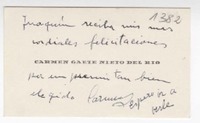 1382
Joaquín reciba mis más
cordiales felicitaciones
CARMEN GAETE NIETO DEL RIO
por un premio tan bien
elegido Carmen
Espero ir a
verle